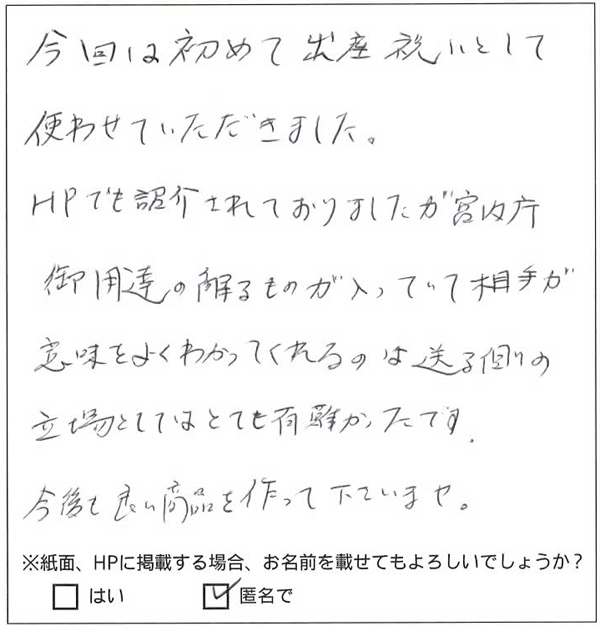 今回は初めて出産祝いとして
使わせていただきました。
HPでも紹介されておりましたが宮内庁
御用達の解るものが入っていて相手が
意味をよくわかってくれるのは送る側の
立場としてはとても有難かったです。
今後も良い商品を作って下さいませ。
※紙面、HPに掲載する場合、お名前を載せてもよろしいでしょうか?
□ はい ☑ 匿名で